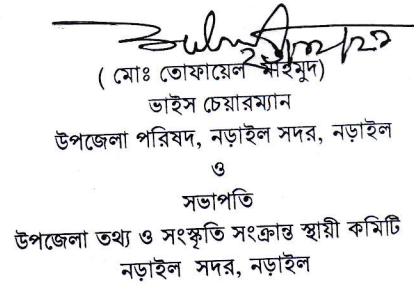 ( মোঃ তোফায়েল মাহমুদ)
ভাইস চেয়ারম্যান
উপজেলা পরিষদ, নড়াইল সদর, নড়াইল
ও
সভাপতি
উপজেলা তথ্য ও সংস্কৃতি সংক্রান্ত স্থায়ী কমিটি
নড়াইল সদর, নড়াইল